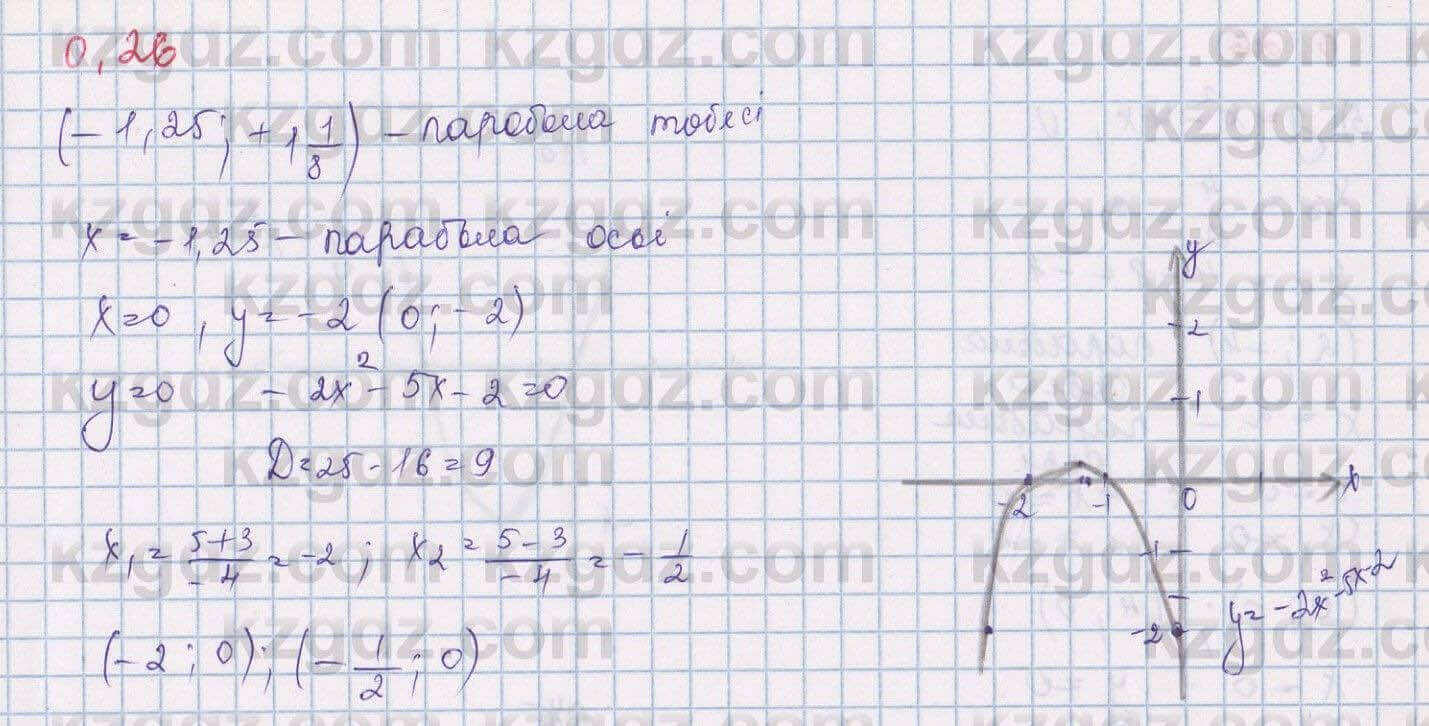 0,26
(-1,25; +1 1/8) - парабола төбесі
x = -1,25 - парабола осьі
x=0, y=-2 (0; -2)
y=0 -2x²-5x-2=0
D=25-16=9
x₁ = (5+3)/(-4) = -2; x₂ = (5-3)/(-4) = -1/2
(-2; 0); (-1/2; 0)
y
2
1
-2 -1 0 x
-1
-2
y=-2x²-5x-2
kzgdz.com